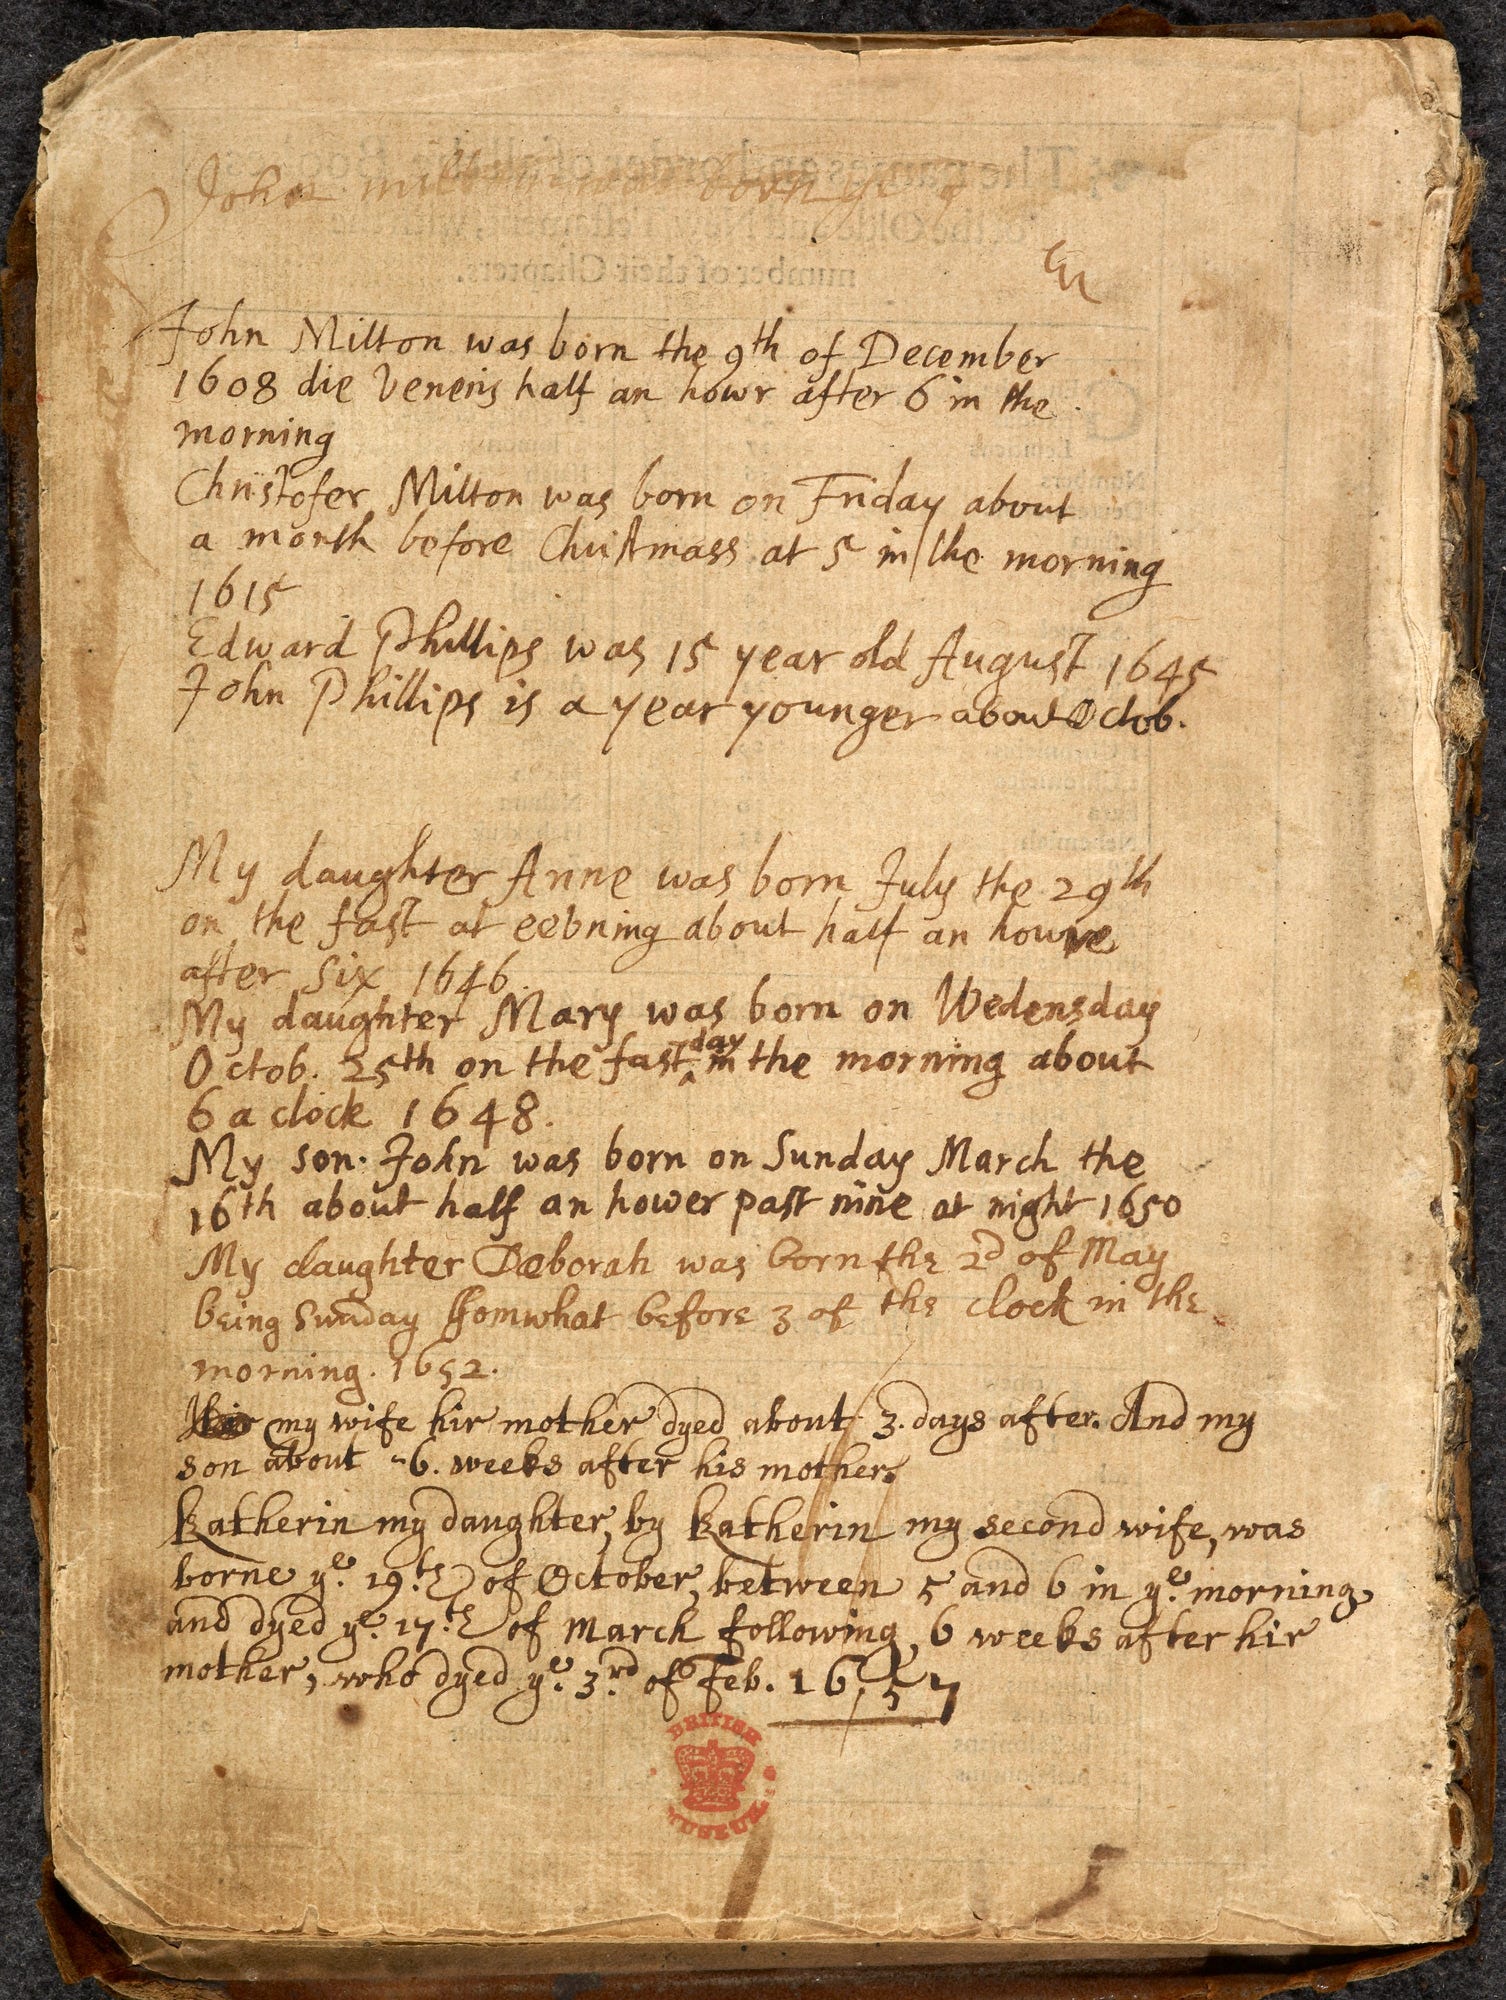 John was born ye 9
John Milton was born the 9th of December
1608 die Veneris half an howr after 6 in the
morning
Christofer Milton was born on Friday about
a month before Christmass at 5 in the morning
1615
Edward Phillips was 15 year old August 1645
John Phillips is a year younger about Octob.
My daughter Anne was born July the 29th
on the fast at eebning about half an houre
after six 1646.
My daughter Mary was born on Wedensday
Octob. 25th on the fast day in the morning about
6 a clock 1648.
My son John was born on Sunday March the
16th about half an hower past nine at night 1650
My daughter Deborah was born the 2d of May
being Sunday somwhat before 3 of the clock in the
morning. 1652.
my wife hir mother dyed about 3. days after. And my
son about 6. weeks after his mother.
Katherin my daughter, by Katherin my second wife, was
borne ye. 19.th of October, between 5 and 6 in ye. morning,
and dyed ye. 17.th of March following, 6 weeks after hir
mother, who dyed ye. 3.rd of Feb. 1657
BRITISH
MUSEUM